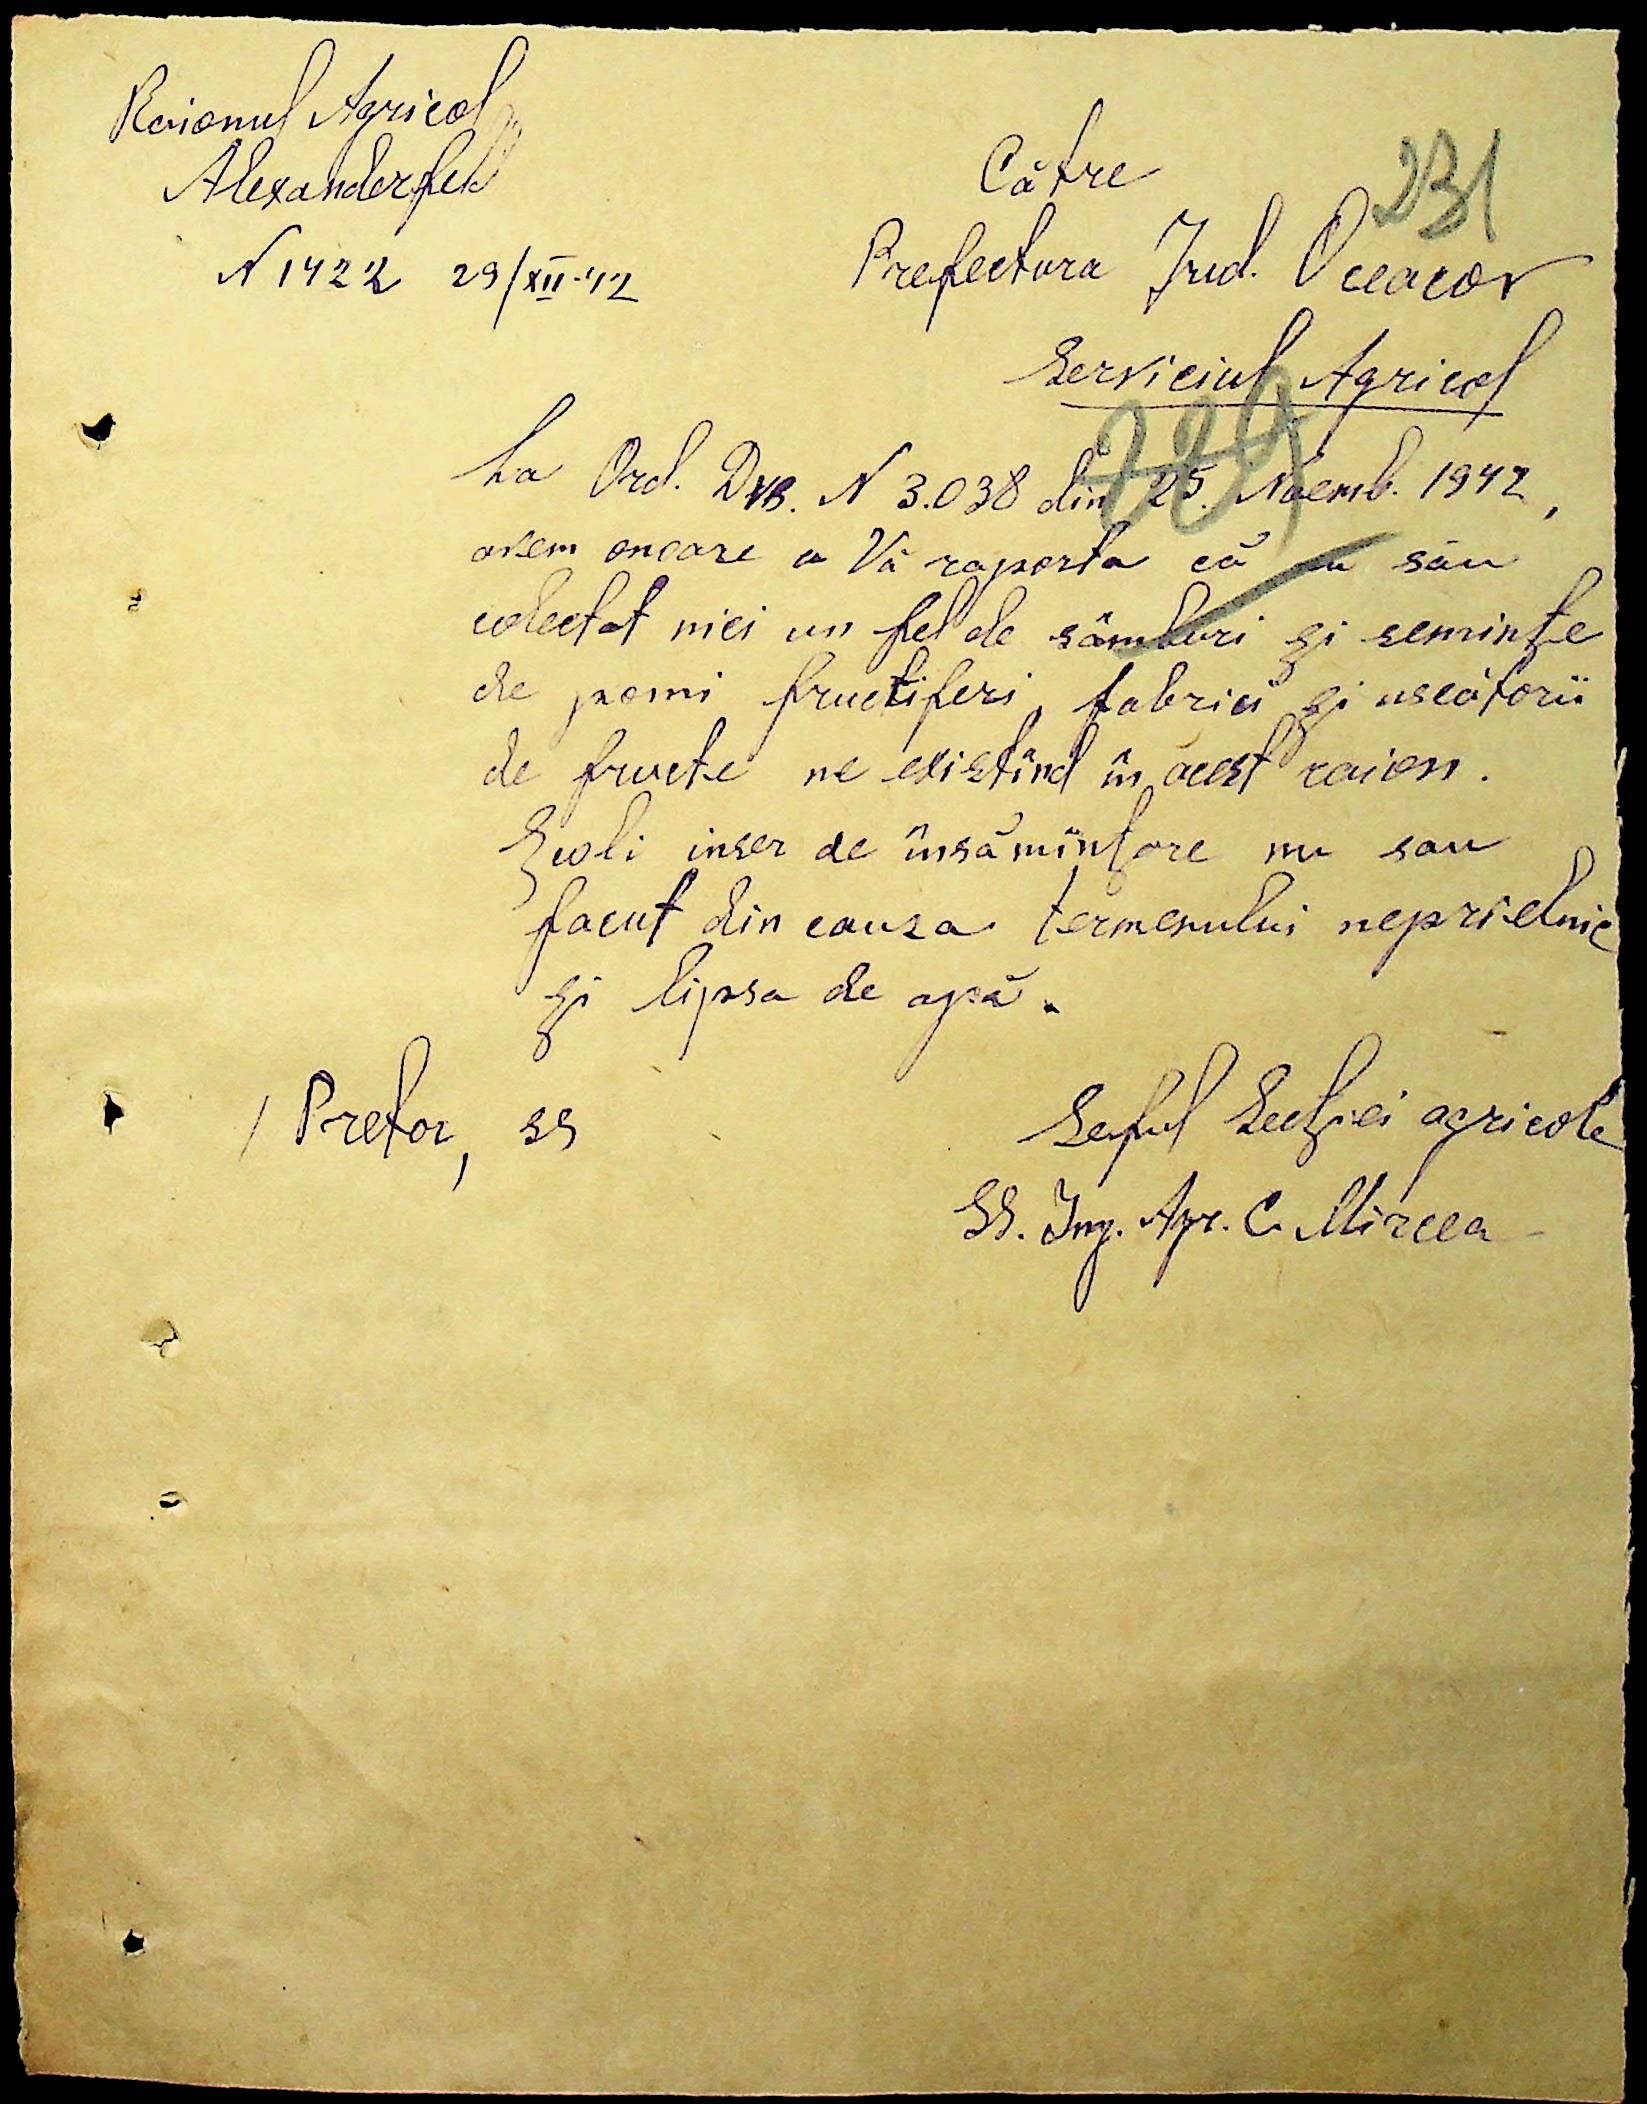 Raionul Agricol
Alexanderfeld
N 1422 29/XII-42
Către
231
Prefectura Jud. Oceacov
Serviciul Agricol
229
La Ord. Dvs. N 3.038 din 25. Noemb. 1942,
avem onoare a Vă raporta că nu său
colectat nici un fel de sâmburi și seminţe
de pomi fructiferi, fabrici și uscătorii
de fructe ne existînd în acest raion.
Școli de însămînţare nu sau
facut din cauza termenului neprielnic
și lipsa de apă.
Pretor, ss
Șeful Secţiei agricole
SS. Ing. Agr. C. Mircea